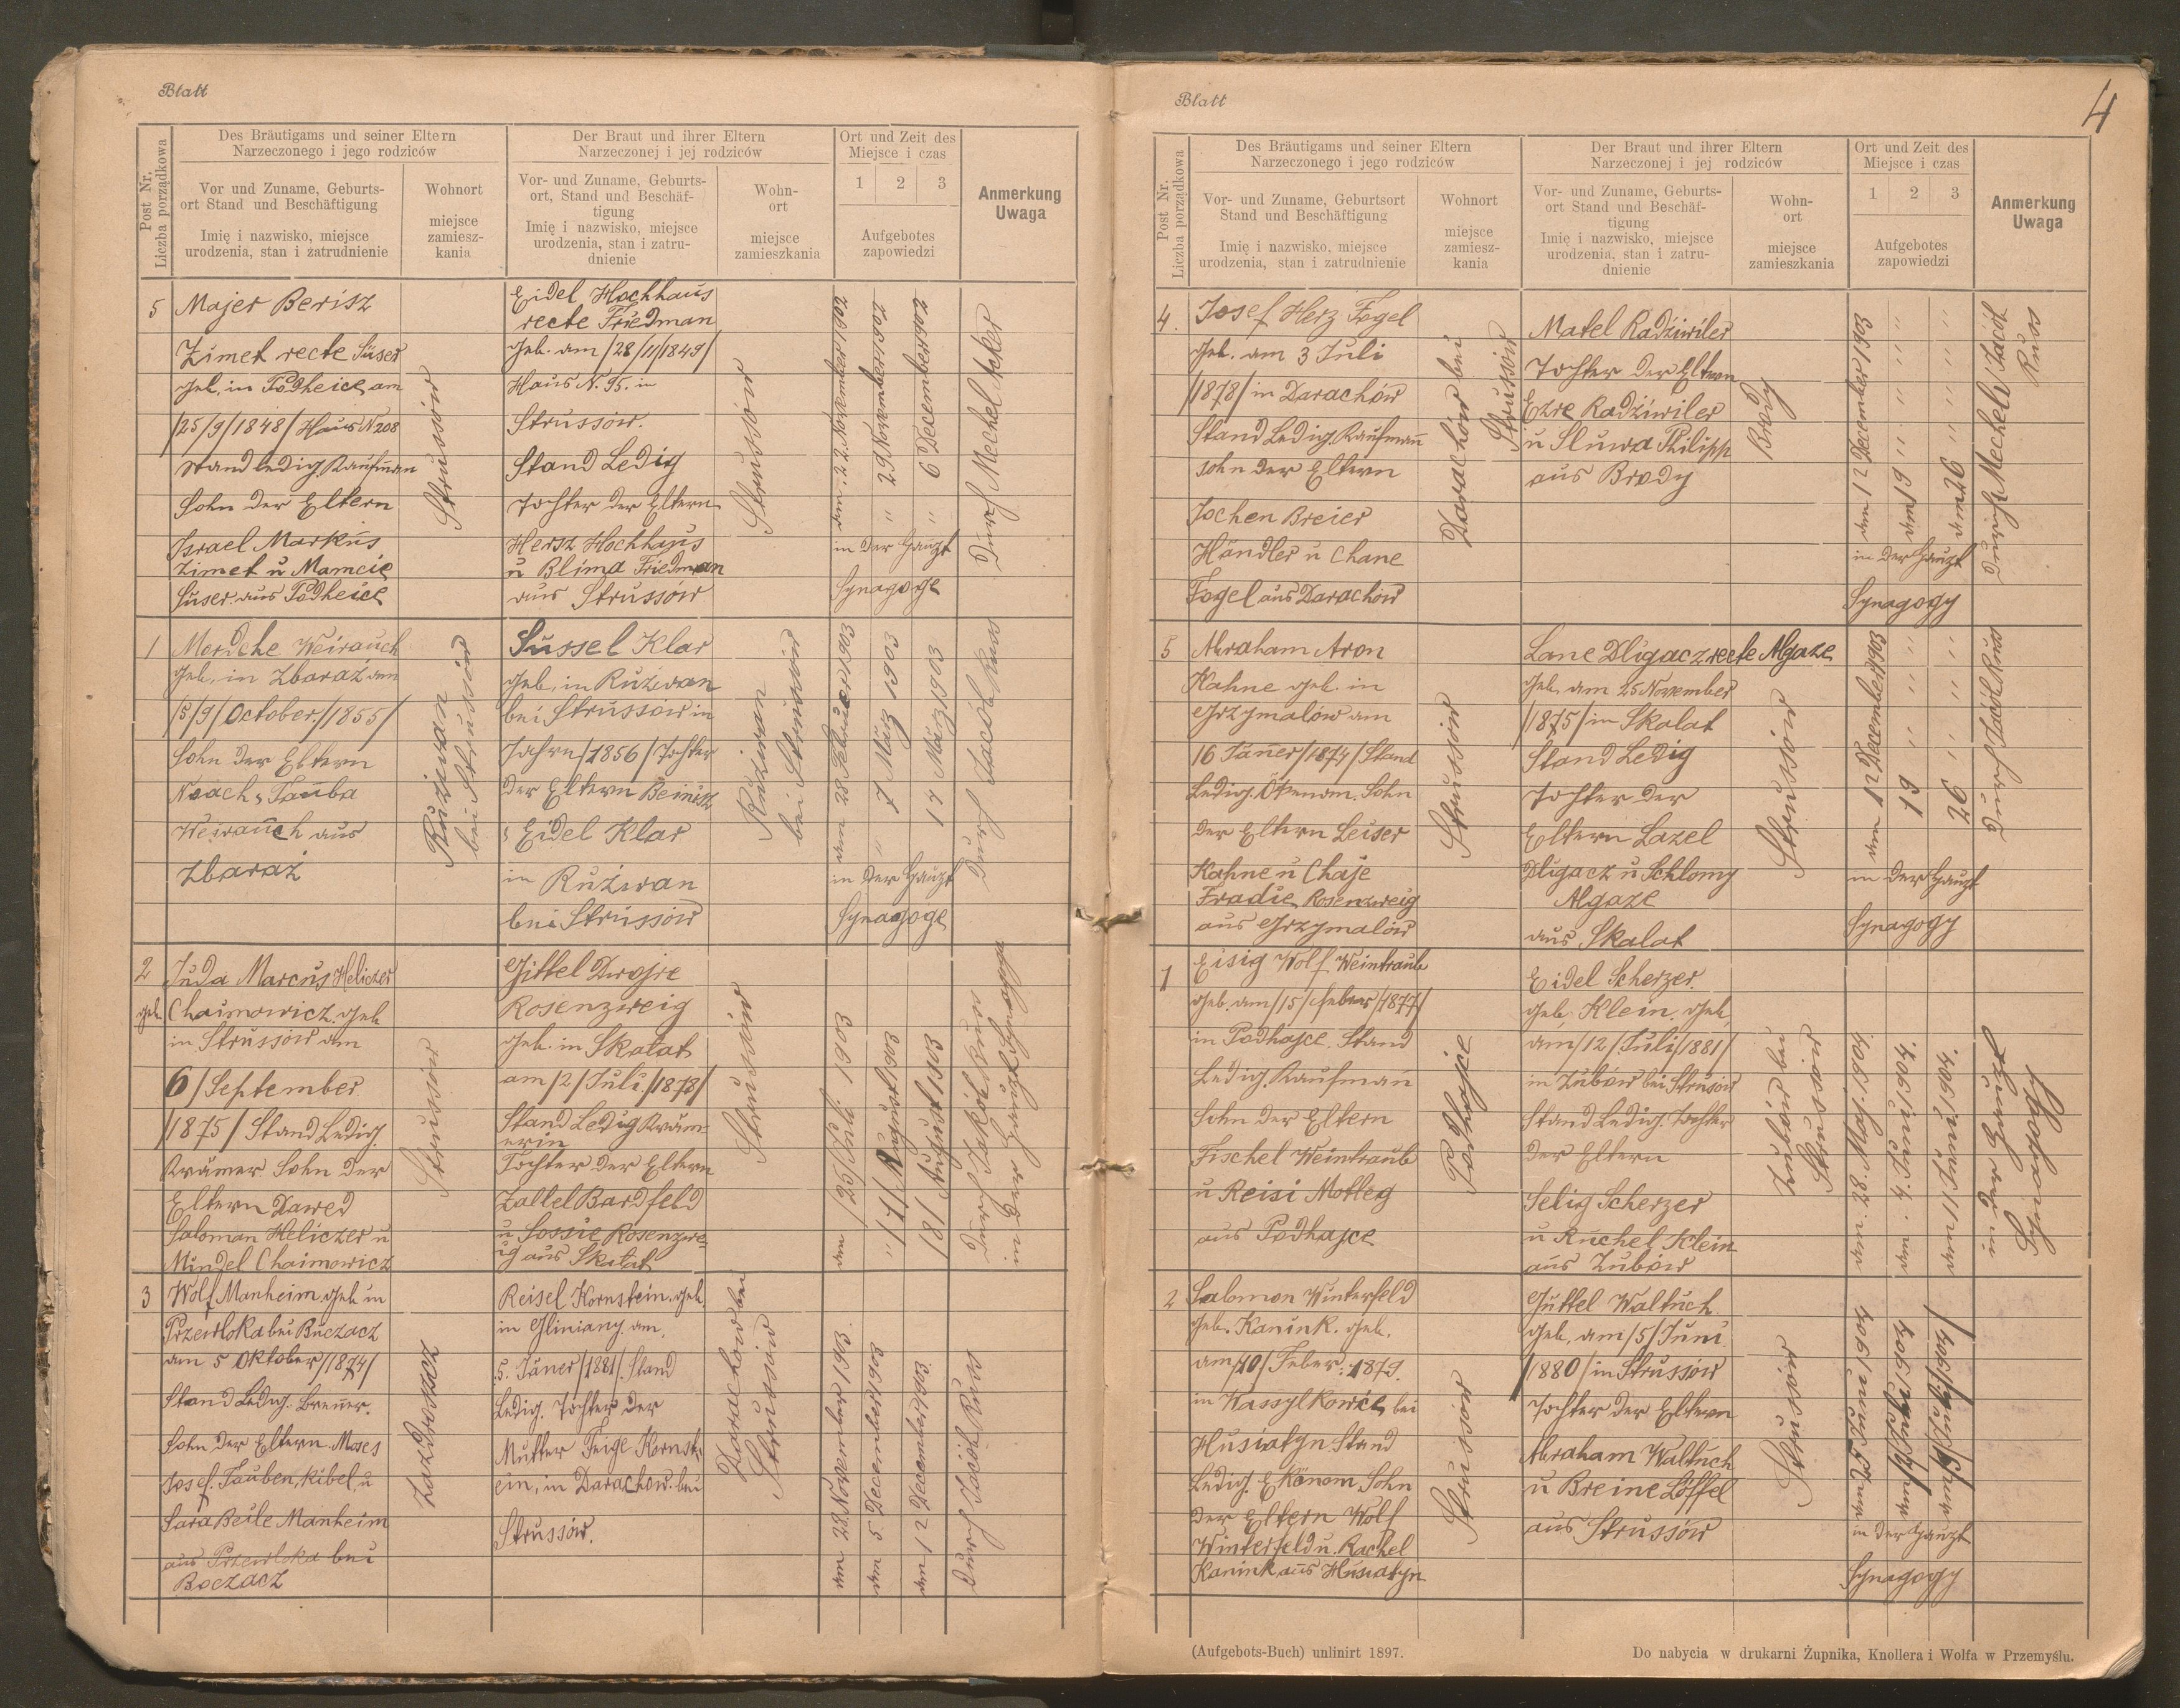 Blatt
Post Nr.
Liczba porządkowa
Des Bräutigams und seiner Eltern
Narzeczonego i jego rodziców
Vor und Zuname, Geburts-
ort Stand und Beschäftigung
Imię i nazwisko, miejsce
urodzenia, stan i zatrudnienie
Wohnort
miejsce
zamiesz-
kania
Der Braut und ihrer Eltern
Narzeczonej i jej rodziców
Vor- und Zuname, Geburts-
ort, Stand und Beschäf-
tigung
Imię i nazwisko, miejsce
urodzenia, stan i zatru-
dnienie
Wohn-
ort
miejsce
zamieszkania
Ort und Zeit des
Miejsce i czas
1 2 3
Aufgebotes
zapowiedzi
Anmerkung
Uwaga
5
Majer Berisz
Zimet recte Süser
geb. in Podheice am
/25/9/1848/ Haus N 208
Stand ledig. Kaufman
Sohn der Eltern
Israel Markus
Zimet u Mamcie
Süser aus Podheice
Strussów
Eidel Hochhaus
recte Friedman
geb. am /28/11/1849/
Haus N. 95. in
Strussow.
Stand Ledig
Tochter der Eltern
Hersz Hochhaus
u Blima Friedman
aus Strussów
Strussów
am 22 November 1902
" 29 November 1902
" 6 December 1902
in der Haupt
Synagoge
Durch Mechel Aker
1
Mordche Weirauch
geb. in Zbaraż am
15/9/October/1855/
Sohn der Eltern
Noach, Tauba
Weirauch aus
Zbaraż
Ruziwan
bei Strussów
Sussel Klar
geb. in Ruziwan
bei Strussow in
Jahre /1856/ Tochter
der Eltern Beinisz
, Eidel Klar
in Ruziwan
bei Strussów
Ruziwan
bei Strussów
am 28 Februar 1903
" 7 März 1903
14 März 1903
in der Haupt
Synagoge
Durch Jacob Russ
2
geb.
Juda Marcus Heliczer
Chaimowicz. geb
in Strussów am
6/September
/1875/ Stand Ledig.
Krämer Sohn der
Eltern Dawed
Saloman Heliczer u
Mindel Chaimowicz
Strussów
Gittel Dwojre
Rosenzweig
geb. in Skalat
am /2/ Juli /1878/
Stand Ledig Kräm-
erin
Tochter der Eltern
Zallel Bardfeld
u Sossie Rosenzwe-
ig aus Skalat
Strussów
am /25/ Juli 1903
" /1/ August 1903
/8/ August 1903
Durch Jakob Russ
in der Haupt Synagoge
3
Wolf Manheim geb in
Przewloka bei Buczacz
am 5 Oktober /1874/
Stand Ledig. Brenner.
Sohn der Eltern. Moses
Josef. Taubenkibel, u
Sara Beile Manheim
aus Przewloka bei
Boczacz
Zazdroszcz
Reisel Kornstein. geb.
in Gliniany am
5. Jäner /1881/ Stand
Ledig. Tochter der
Mutter Feige Kornst-
ein, in Darachow bei
Strussów.
Darachow bei
Strussów
am 28 November 1903
am 5 December 1903
am 12 December 1903
Durch Jacob Russ
4
Blatt
Post Nr.
Liczba porządkowa
Des Bräutigams und seiner Eltern
Narzeczonego i jego rodziców
Vor- und Zuname, Geburtsort
Stand und Beschäftigung
Imię i nazwisko, miejsce
urodzenia, stan i zatrudnienie
Wohnort
miejsce
zamiesz-
kania
Der Braut und ihrer Eltern
Narzeczonej i jej rodziców
Vor- und Zuname, Geburts-
ort Stand und Beschäf-
tigung
Imię i nazwisko, miejsce
urodzenia, stan i zatru-
dnienie
Wohn-
ort
miejsce
zamieszkania
Ort und Zeit des
Miejsce i czas
1 2 3
Aufgebotes
zapowiedzi
Anmerkung
Uwaga
4.
Josef Herz Fogel
geb. am 3 Juli
/1878/ in Darachów
Stand Ledig Kaufmann
sohn der Eltern
Jochen Breier
Händler u Chane
Fogel aus Darachów
Darachów bei
Strussów
Matel Radziwiler
Tochter der Eltern
Ezre Radziwiler
u Sluwa Philipp
aus Brody
Brody
am 12 December 1903
am 19 " " "
am 26 " " "
in der Haupt
Synagogy
Durch Mechel u Jacob
Russ
5
Abraham Aron
Kahne geb. in
Grzymalów am
16 Jäner /1874/ Stand
Ledig. Ökenom. Sohn
der Eltern Leiser
Kahne u Chaje
Fradie Rosenzweig
aus Grzymalów
Strussów
Lane Dligacz recte Algaze
geb. am 25 November
/1875/ in Skalat
Stand Ledig
Tochter der
Eltern Lazel
Dligacz u Schlomy
Algaze
aus Skalat
Strussów
am 12 December 1903
19 " " "
26 " " "
in der Haupt
Synagogy
Durch Jacob Russ
1
Eisig Wolf Weintraub
geb. am /15/ Feber /1877/
in Podhajce Stand
Ledig. Kaufman
Sohn der Eltern
Fischel Weintraub
u Reisi Motteg
aus Podhajce
Podhajce
Eidel Scherzer.
geb. Klein. geb,
am /12/ Juli /1881/
in Zubów bei Strusów
Stand Ledig. Tochter
der Eltern
Selig Scherzer
u Ruchel Klein
aus Zubów
Zubów bei
Strussów
am 28. Maj. 1904
am. 4. Juni 1904.
am 11 Juni 1904.
in der Haupt
Synagogy
2
Salomon Winterfeld
geb. Kanink. geb.
am /10/ Feber. 1879.
in Wassylkowce bei
Husiatyn Stand
Ledig. Ekönom Sohn
der Eltern Wolf
Winterfeld u. Rachel
Kanink aus Husiatyn
Strussów
Guttel Waltuch
geb. am /5/ Juni
/1880/ in Strussów
Tochter der Eltern
Abraham Waltuch
u Breine Löffel
aus Strussów
Strussów
am 25 Juni 1904
in der Haupt
Synagogy
(Aufgebots-Buch) unlinirt 1897.
Do nabycia w drukarni Żupnika, Knollera i Wolfa w Przemyślu.